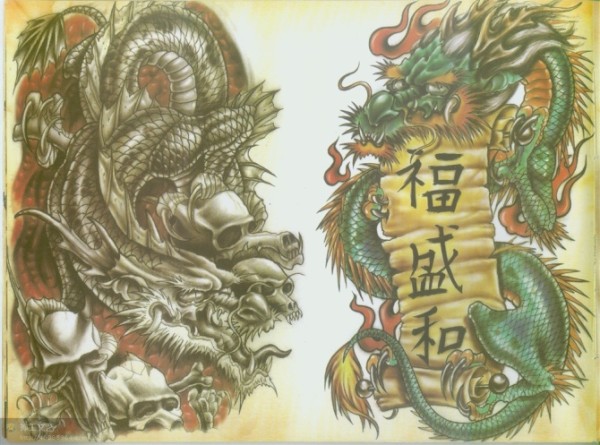 福
盛
和